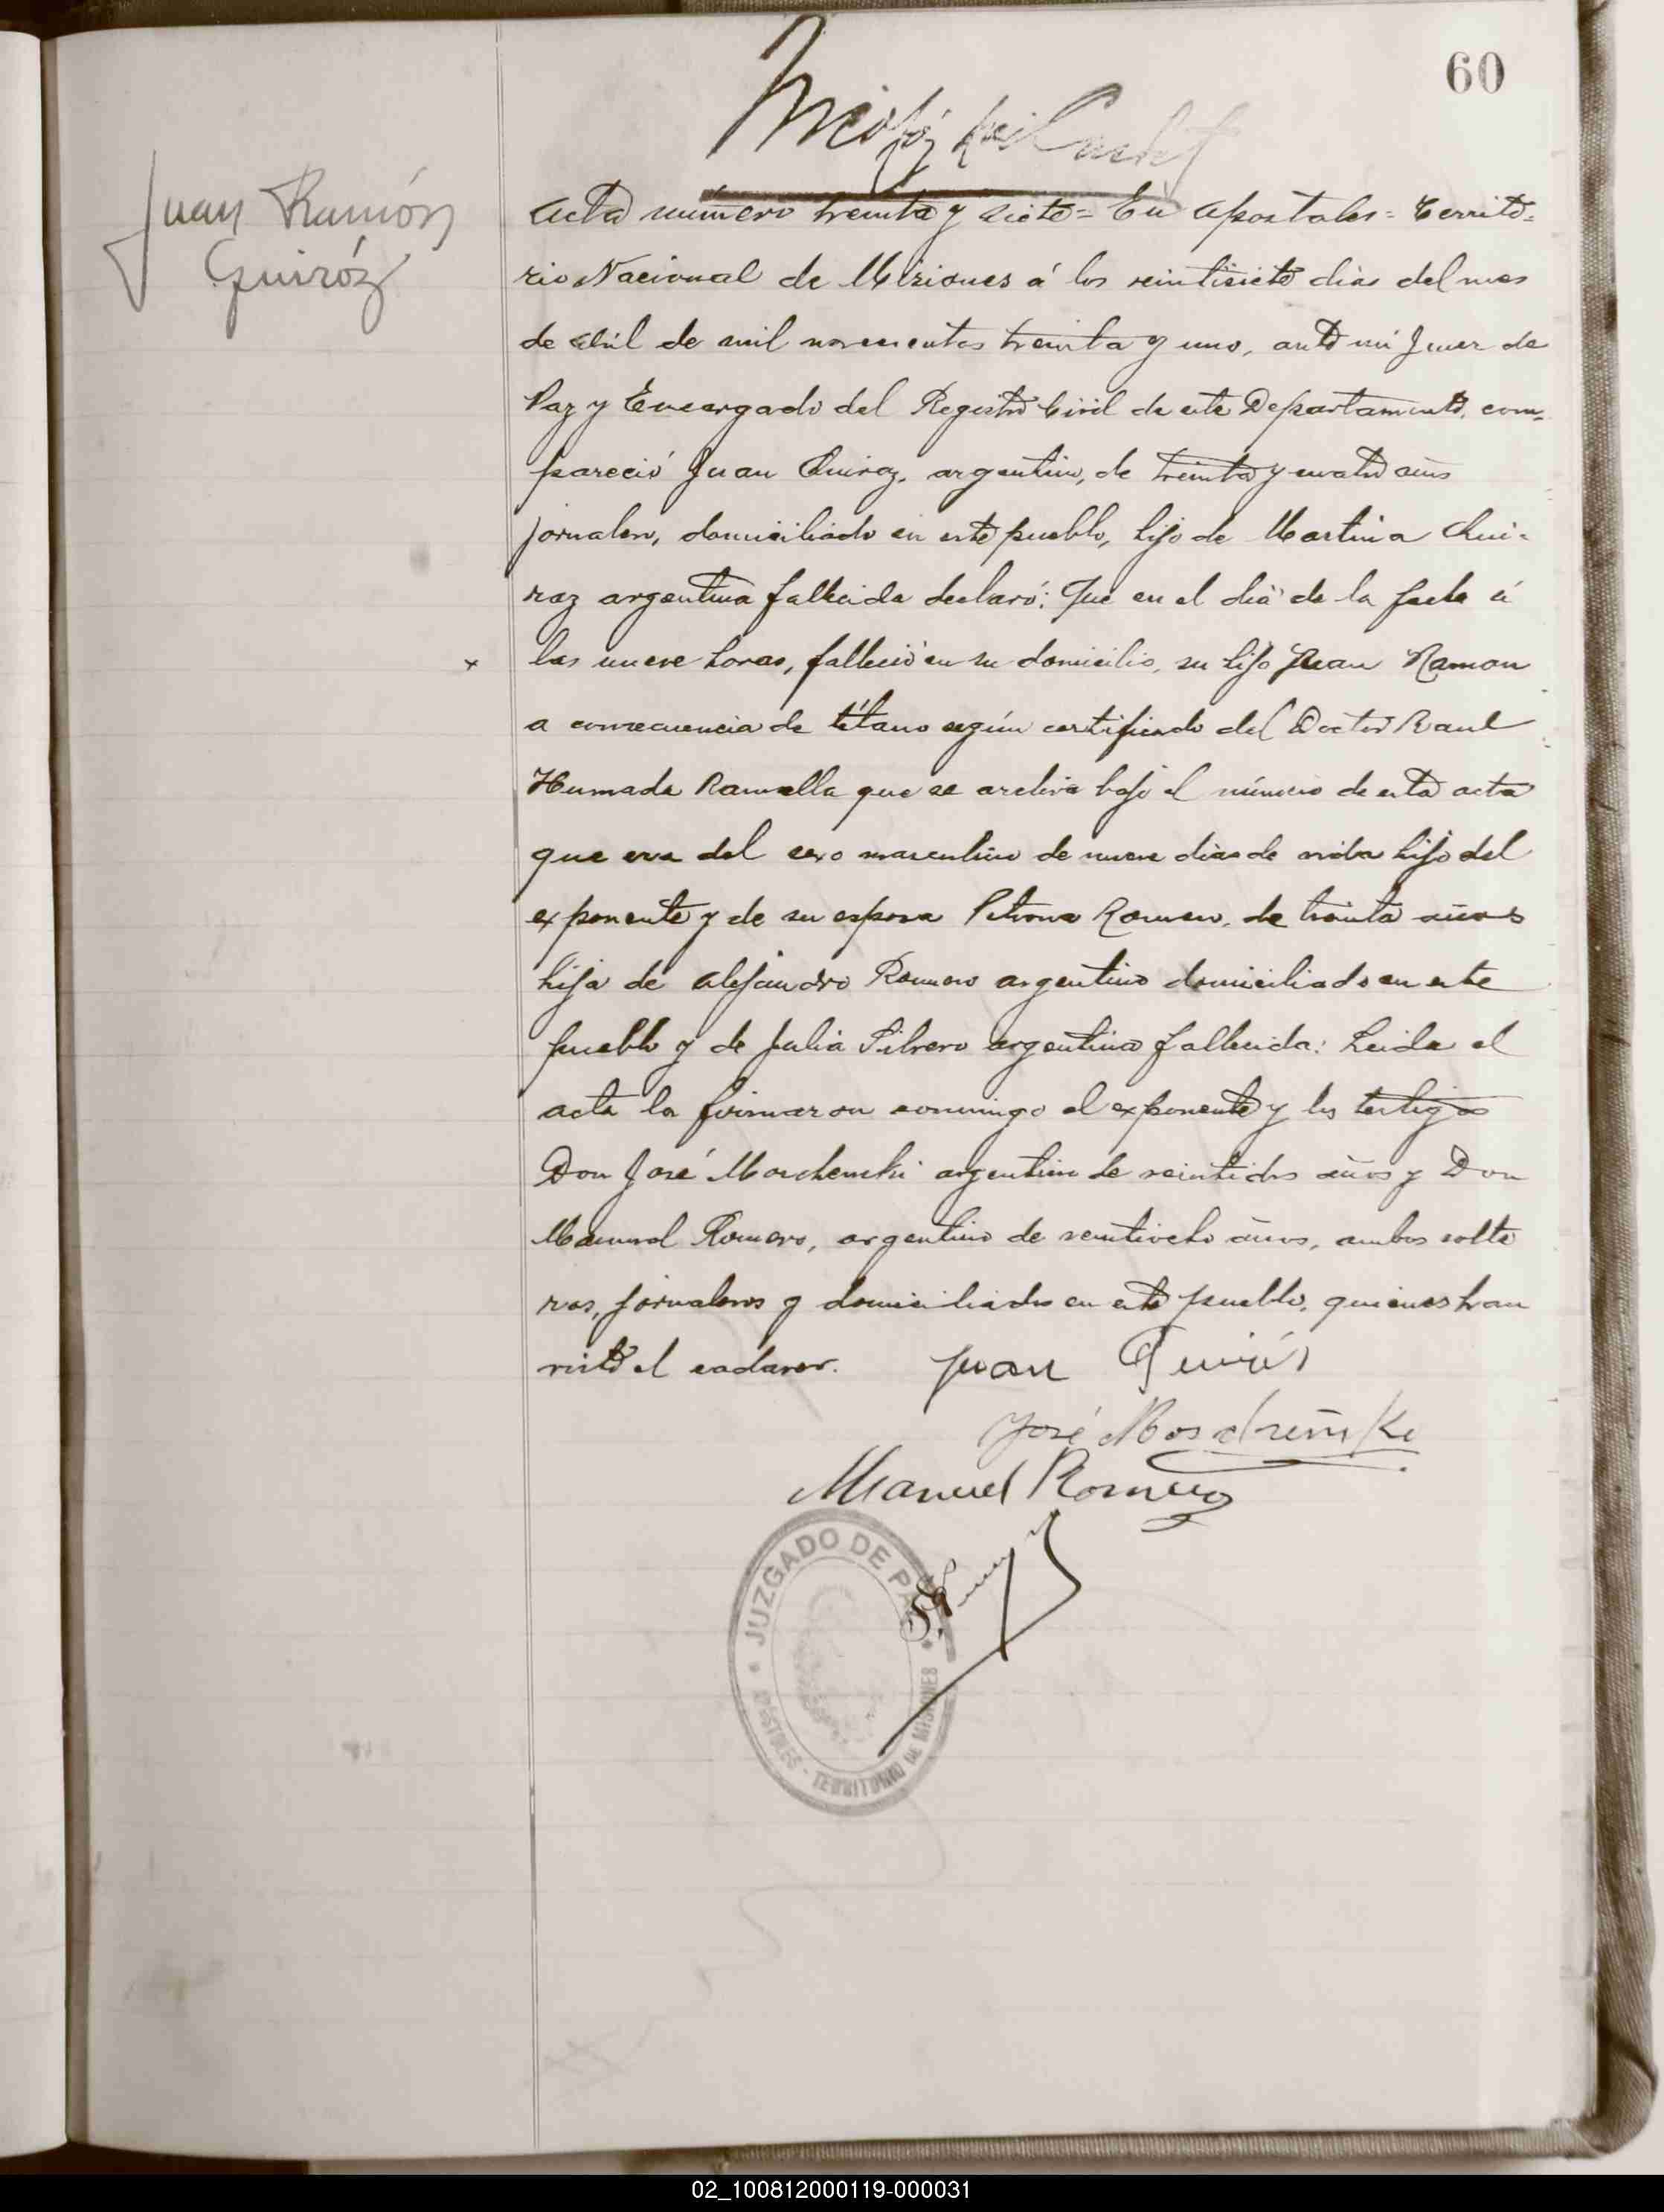 60
Juan Ramón
Quiróz
Acta número treinta y siete = En Apostoles = Territo=
rio Nacional de Misiones á los veintisiete dias del mes
de Abril de mil novecientos treinta y uno, ante mi Juez de
Paz y Encargado del Registro Civil de este Departamento, com=
pareció Juan Quiroz, argentino, de treinta y cuatro años
jornalero, domiciliado en este pueblo, hijo de Martina Qui=
roz argentina fallecida declaró: Que en el dia de la fecha á
las nueve horas, falleció en su domicilio, su hijo Juan Ramon
a consecuencia de tétano según certificado del Doctor Raul
Humada Ramella que se archiva bajo el número de esta acta
que era del sexo masculino de nueve dias de vida hijo del
exponente y de su esposa Petrona Romero, de treinta años
hija de Alejandro Romero argentino domiciliado en este
pueblo y de Julia argentina fallecida: Leida el
acta la firmaron conmigo el exponente y los testigos
Don José argentino de veintidos años y Don
Manuel Romero, argentino de veintiocho años, ambos solte
ros, jornaleros y domiciliados en este pueblo, quienes han
visto el cadaver. Juan Quirós
José
Manuel Romero
JUZGADO DE PAZ
APOSTOLES - TERRITORIO DE MISIONES
02_100812000119-000031